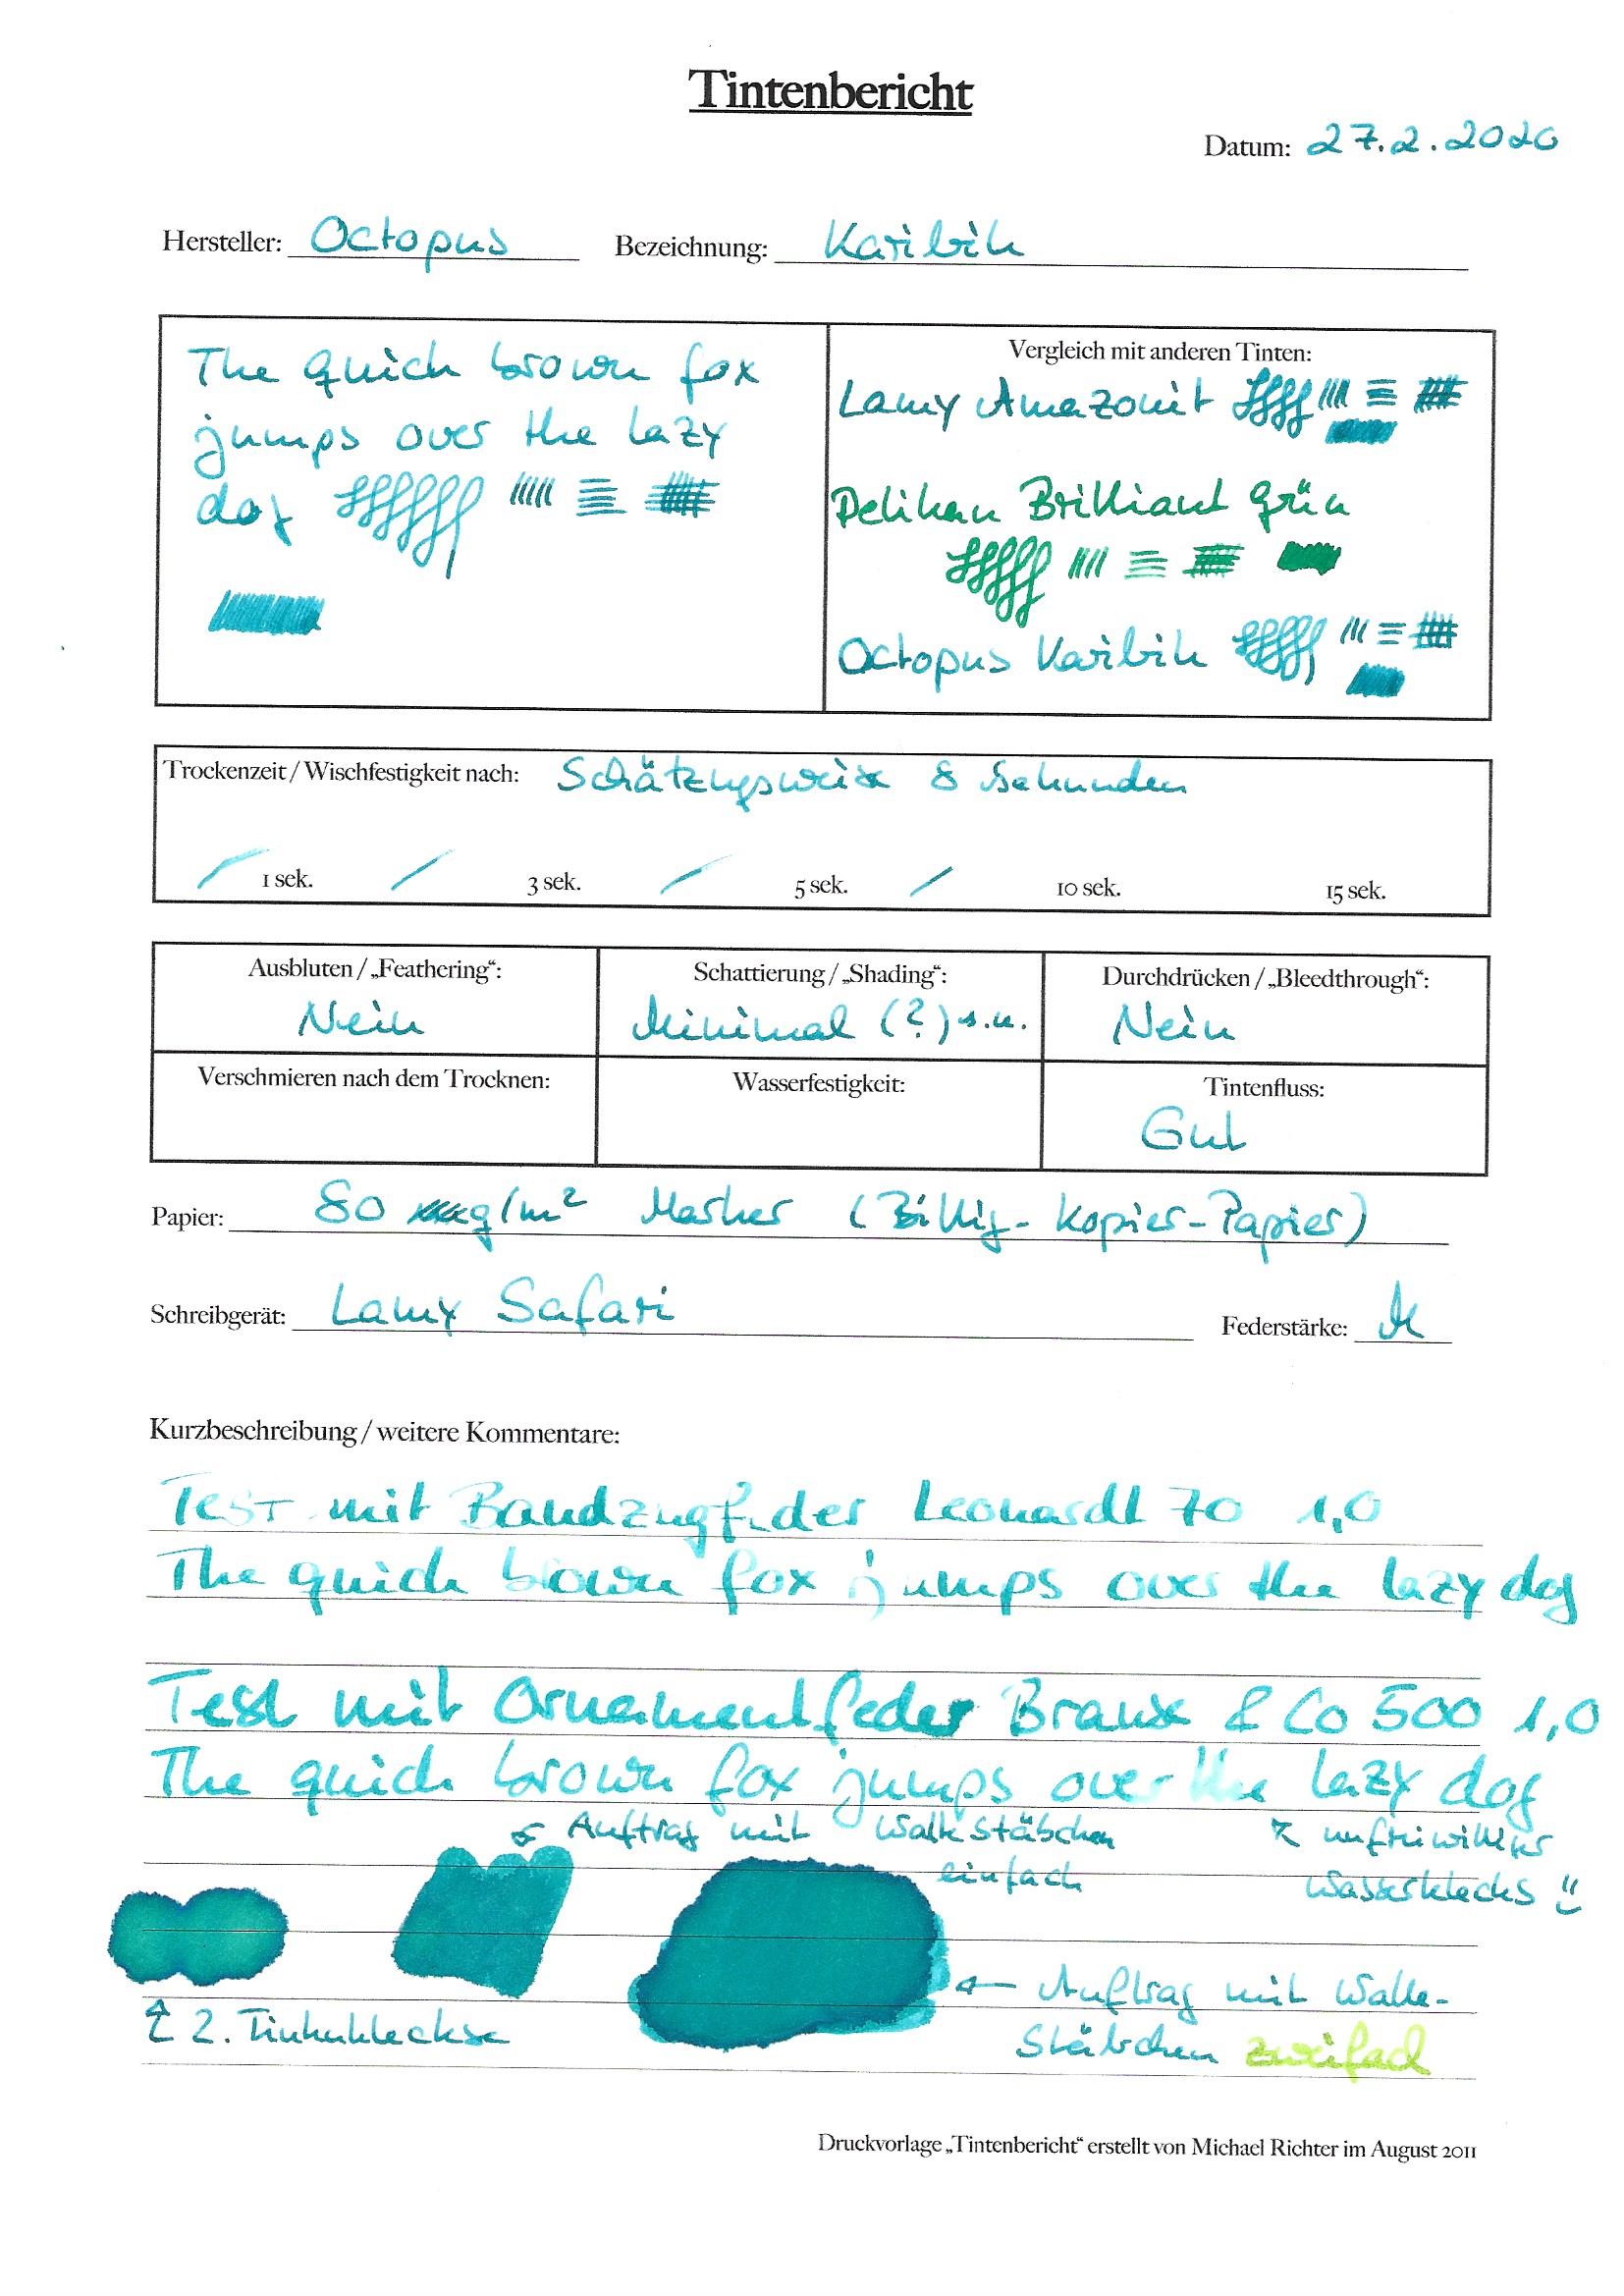 Tintenbericht
Datum: 27.2.2020
Hersteller: Octopus Bezeichnung: Karibik
The quick brown fox
jumps over the lazy
dog
Vergleich mit anderen Tinten:
Lamy Amazonit
Pelikan Brilliant Grün
Octopus Karibik
Trockenzeit / Wischfestigkeit nach: Schätzungsweise 8 Sekunden
1 sek. 3 sek. 5 sek. 10 sek. 15 sek.
Ausbluten / „Feathering“: Schattierung / „Shading“: Durchdrücken / „Bleedthrough“:
Nein Minimal (?) s.u. Nein
Verschmieren nach dem Trocknen: Wasserfestigkeit: Tintenfluss:
Gut
Papier: 80 g/m² Marker (Billig-Kopier-Papier)
Schreibgerät: Lamy Safari Federstärke: M
Kurzbeschreibung / weitere Kommentare:
Test mit Bandzugfeder Leonardt 70 1,0
The quick brown fox jumps over the lazy dog
Test mit Ornamentfeder Brause & Co 500 1,0
The quick brown fox jumps over the lazy dog
Auftrag mit Wattestäbchen
einfach
unfreiwilliger
Wasserklecks
Auftrag mit Watte-
Stäbchen zweifach
2. Tintenkleckse
Druckvorlage „Tintenbericht“ erstellt von Michael Richter im August 2011